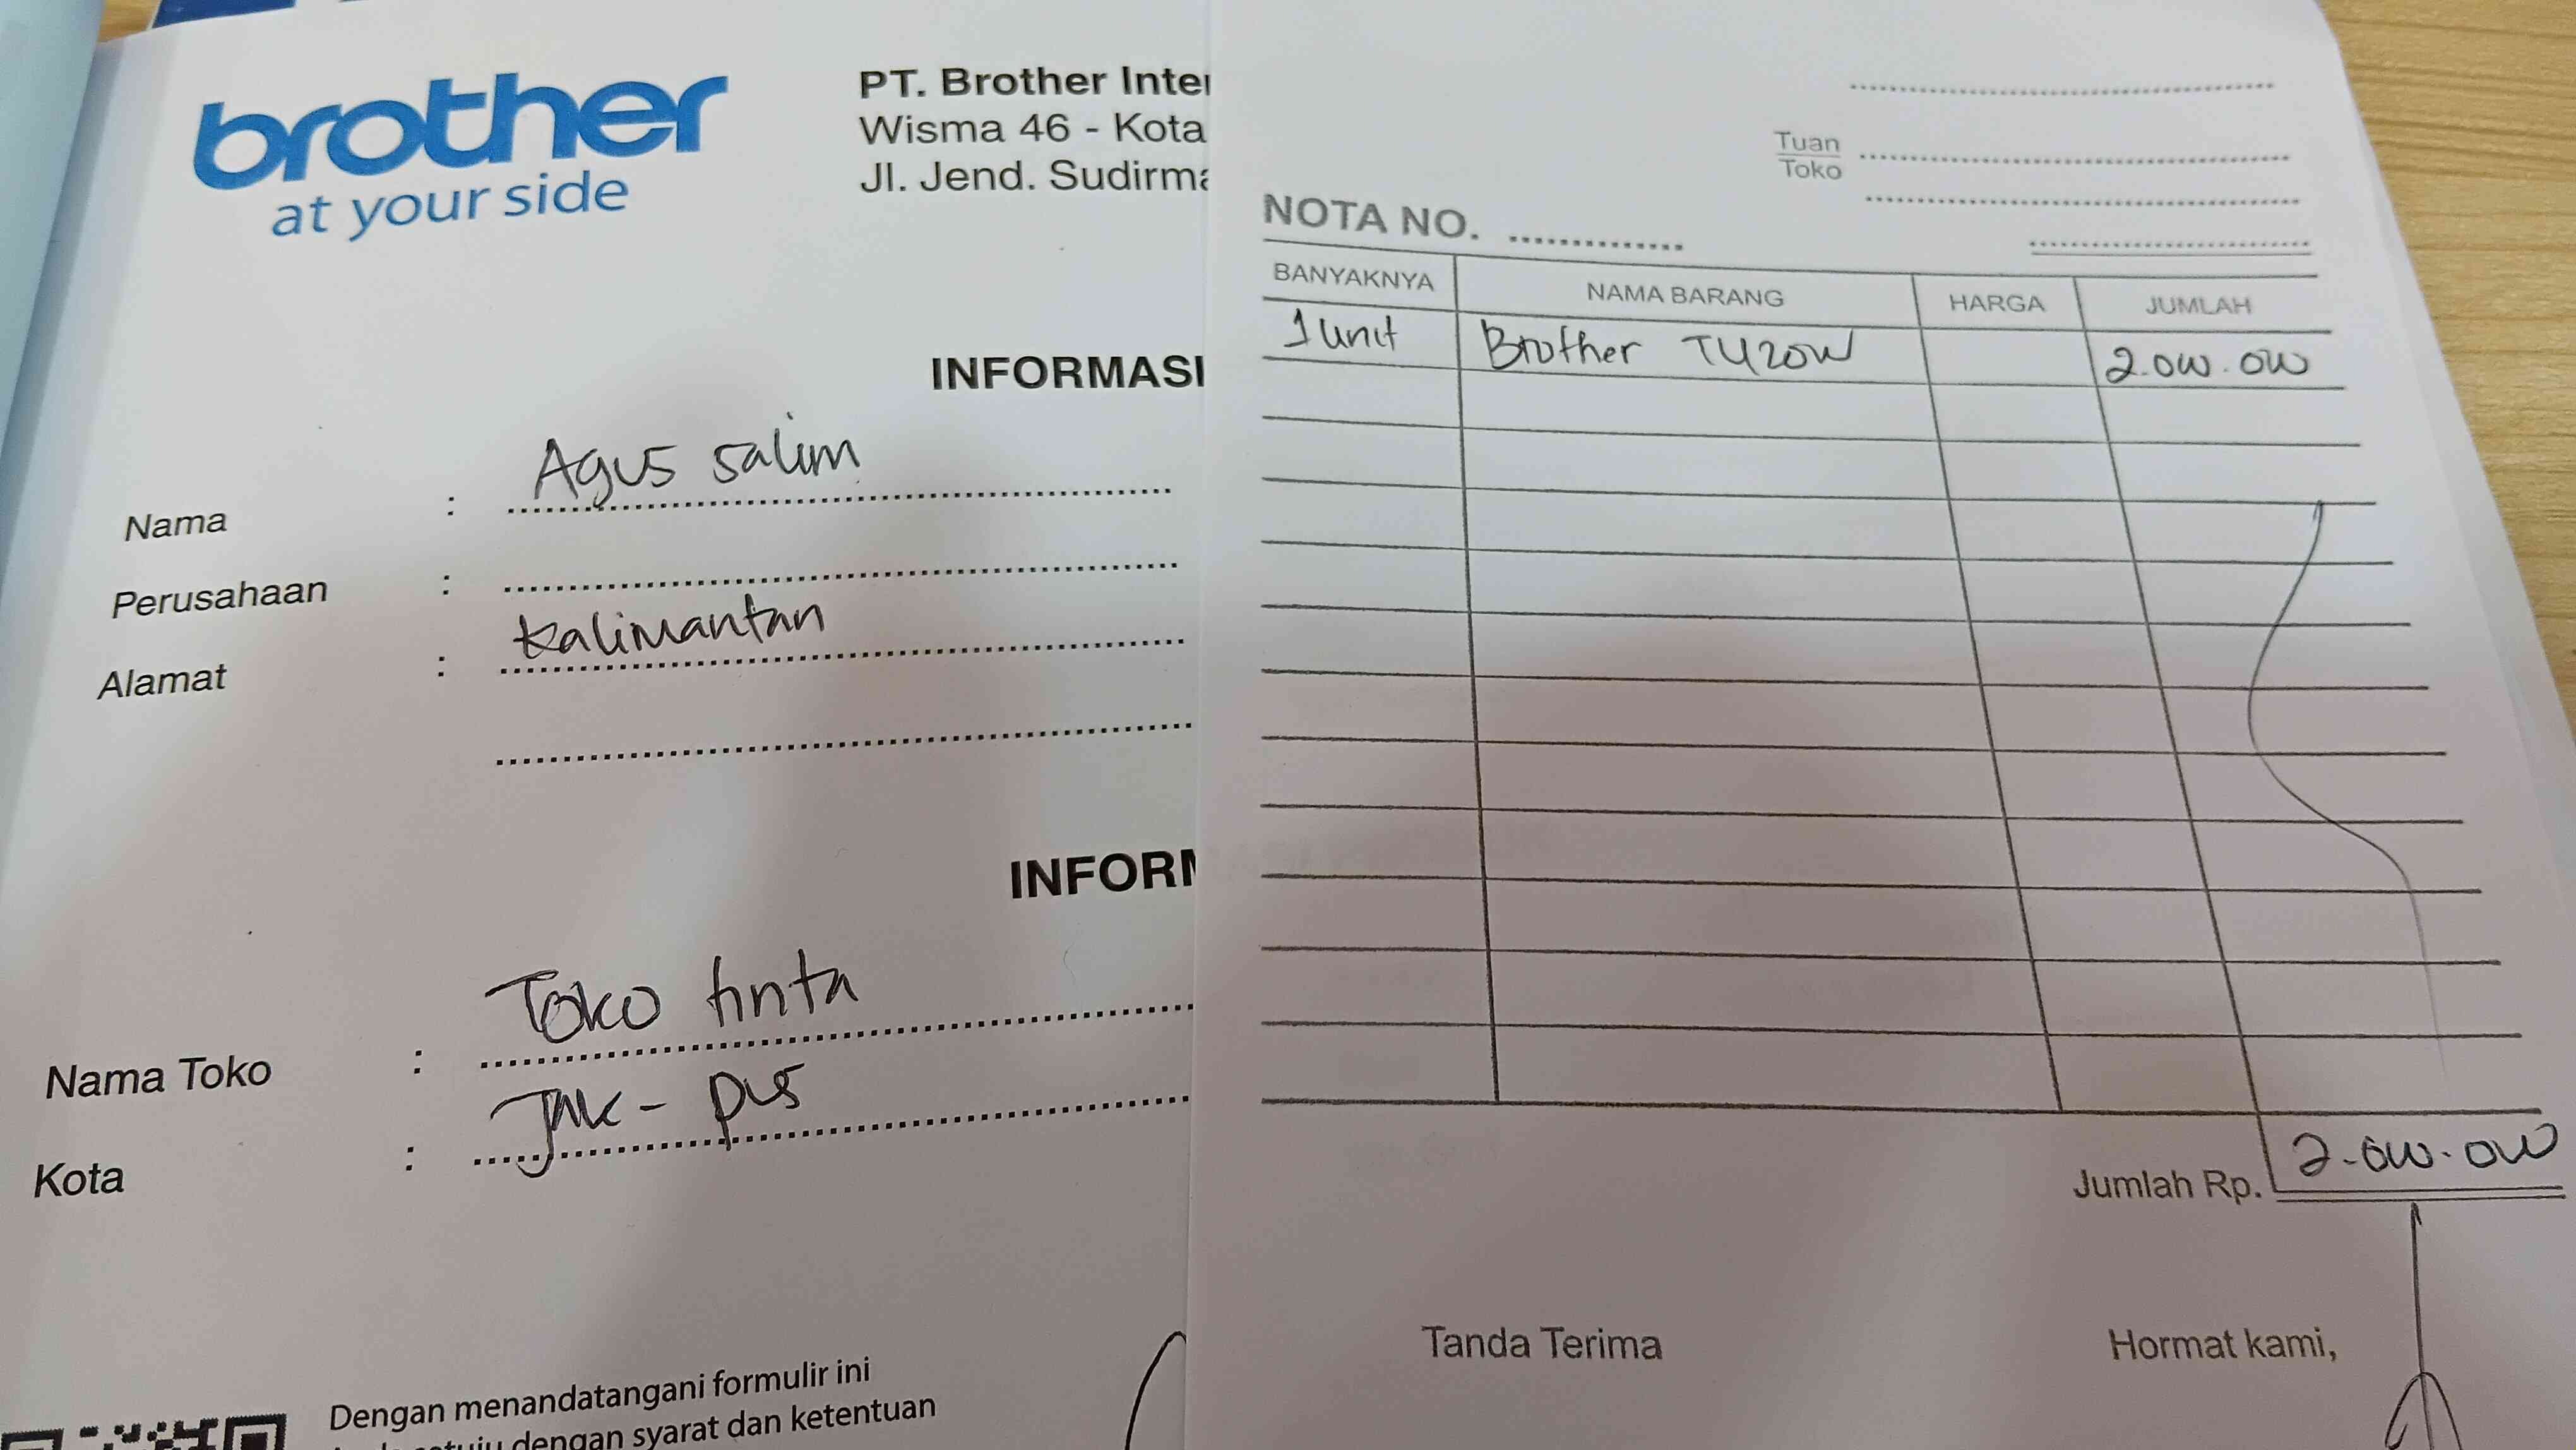 brother
at your side
PT. Brother Inter
Wisma 46 - Kota
Jl. Jend. Sudirma
INFORMASI
Nama : Agus Salim
Perusahaan :
Alamat : Kalimantan
INFORM
Nama Toko : Toko tinta
Kota : Jak - pus
Dengan menandatangani formulir ini
dengan syarat dan ketentuan
Tuan
Toko
NOTA NO.
BANYAKNYA NAMA BARANG HARGA JUMLAH
1 unit Brother T420W 2.000.000
Jumlah Rp. 2.000.000
Tanda Terima Hormat kami,